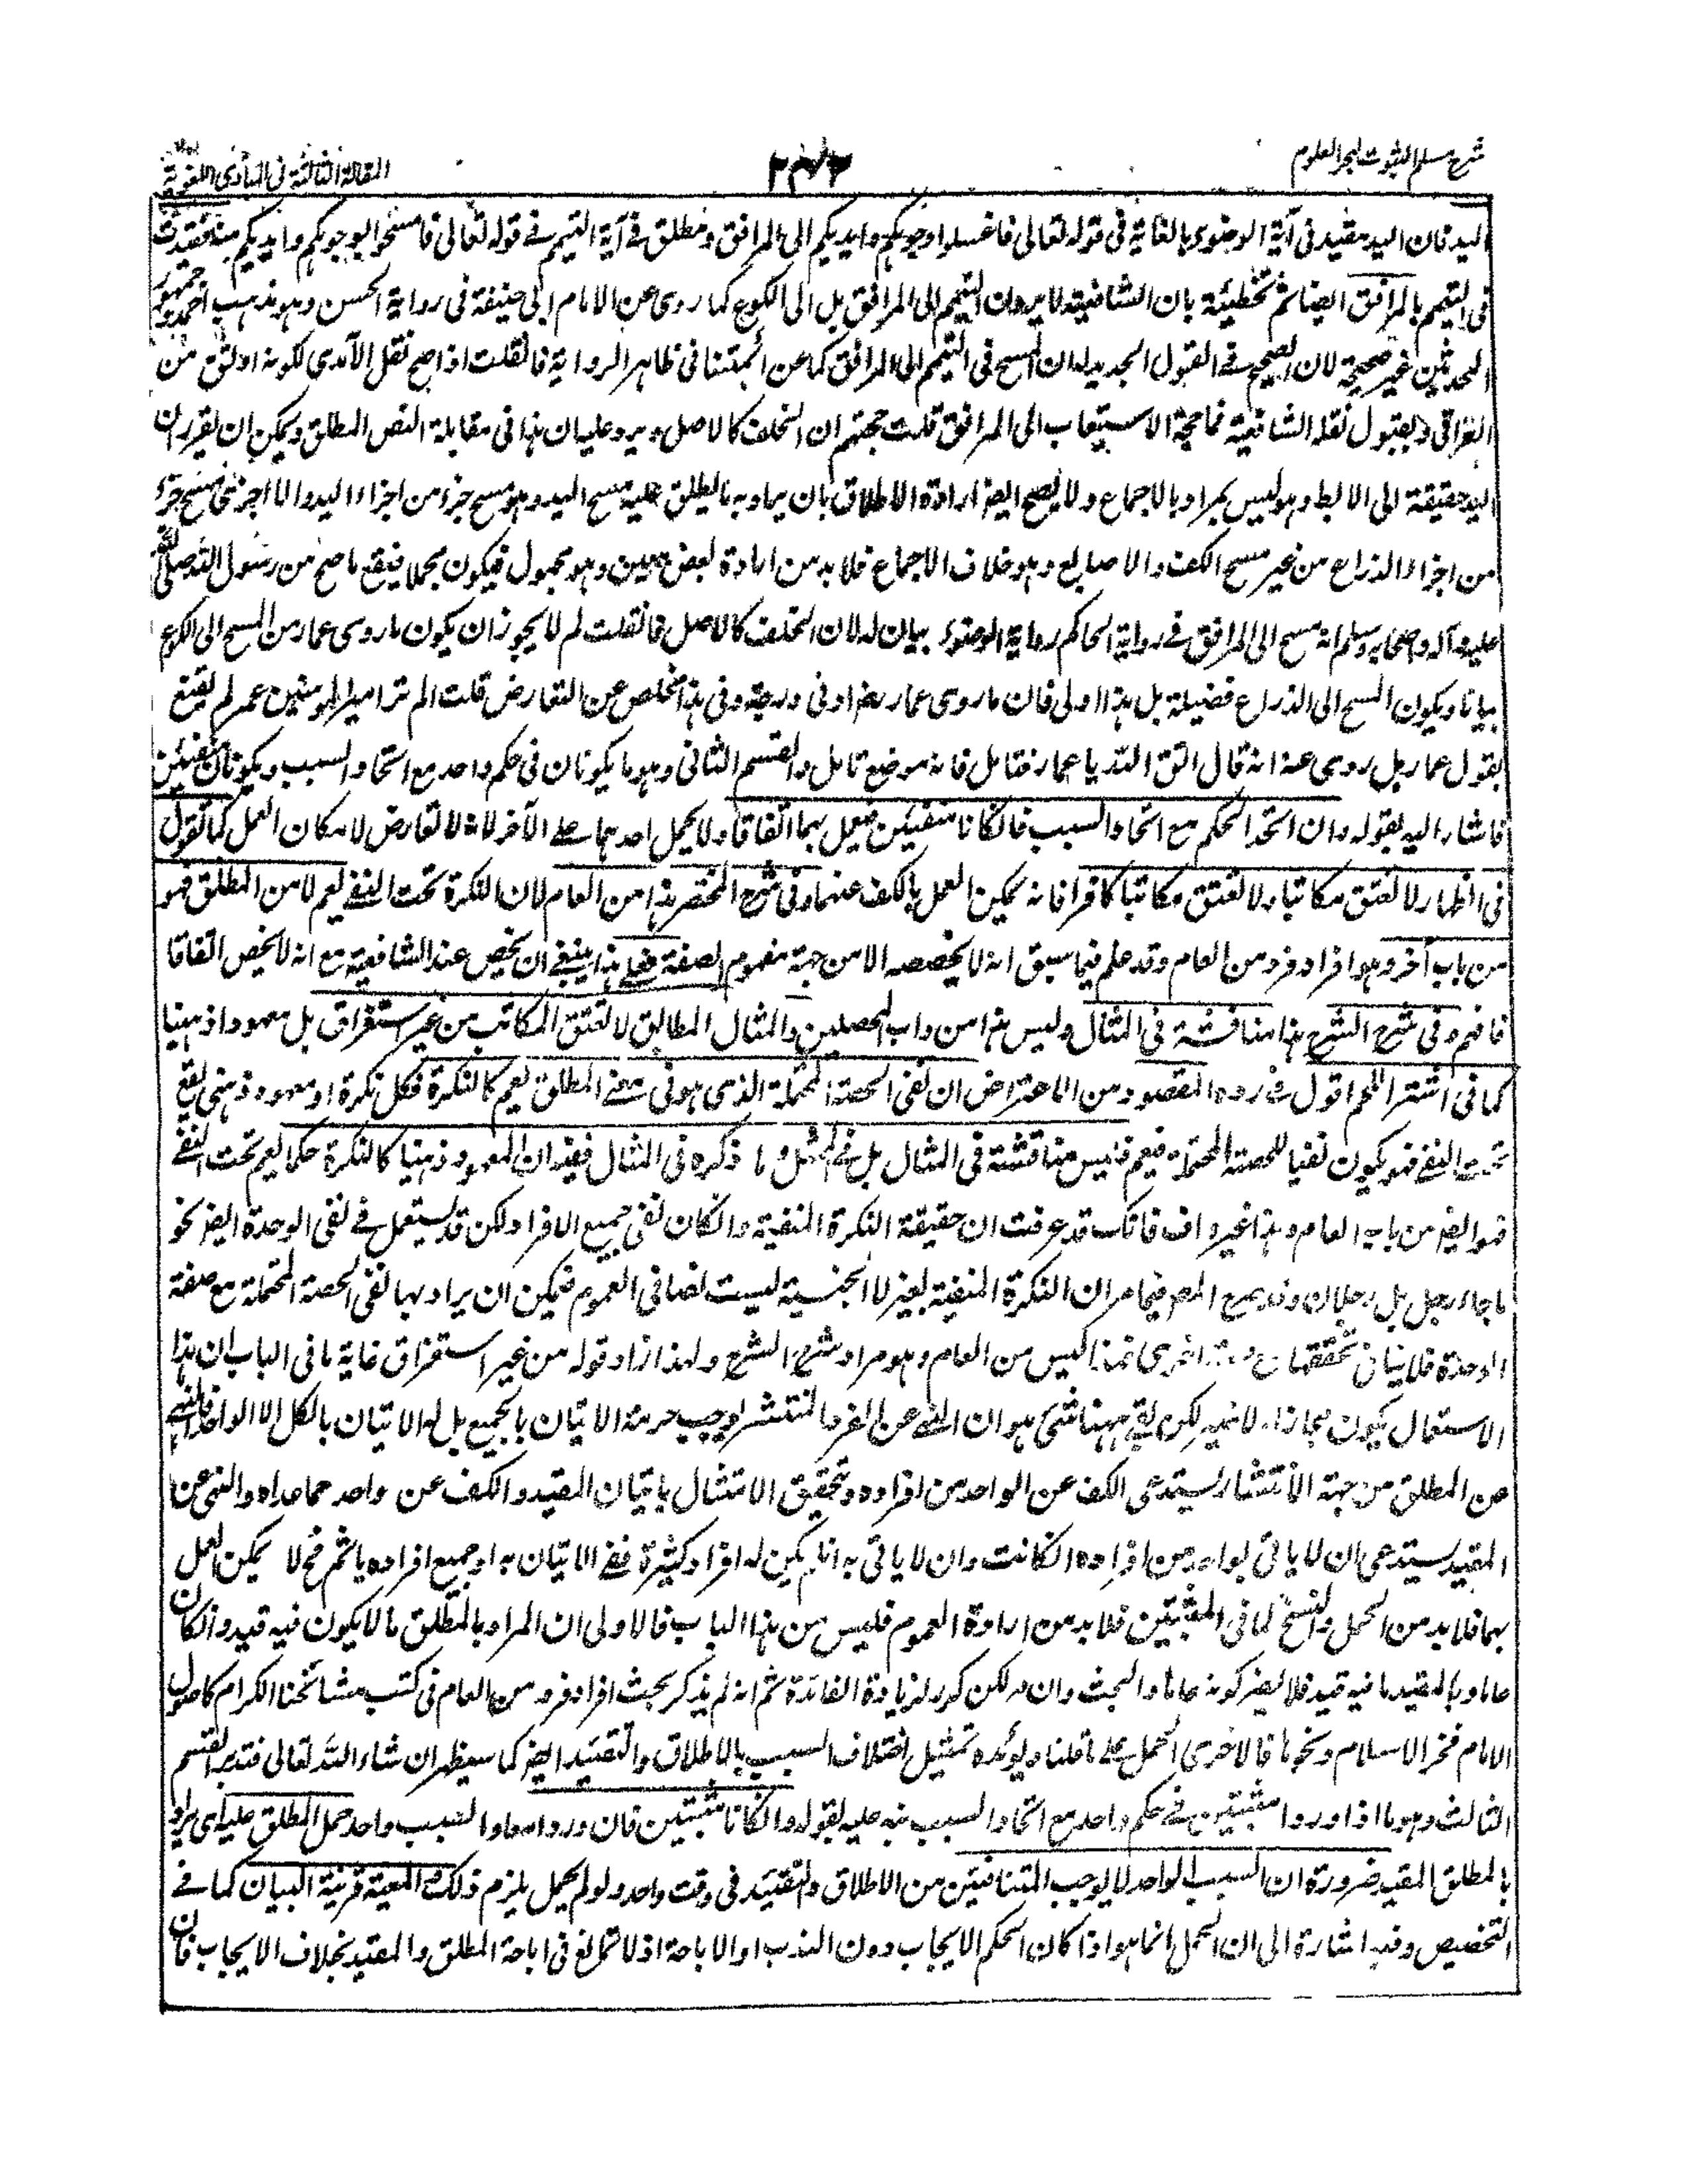 شرح مسلم الثبوت لبحر العلوم
المقالة الثالثة فى المبادى اللغوية
اليد فان اليد مقيد فى آية الوضوء بالغاية فى قوله تعالى فاغسلوا وجوهكم وايديكم الى المرافق ومطلق فى آية التيمم فى قوله تعالى فامسحوا بوجوهكم وايديكم منه فقيدت
فى التيمم بالمرافق ايضا ثم تخطيئة بان الشافعية لا يرون التيمم الى المرافق بل الى الكوع كما روى عن الامام ابى حنيفة فى رواية الحسن وهو مذهب احمد وجمهور
المحدثين غير صحيحة لان الصحيح فى القول الجديد له ان المسح فى التيمم الى المرافق كما عن ائمتنا فى ظاهر الرواية فان قلت اذا صح نقل الآمدى لكونه اوثق من
العراقى وبقبول نقله الشافعية فما حجة الاستيعاب الى المرافق قلت حجتهم ان الخلف كالاصل ويرد عليه ان هذا فى مقابلة النص المطلق ويمكن ان يقرر ان
اليد حقيقة الى الابط وهو ليس بمراد بالاجماع ولا يصح ايضا ارادة الاطلاق بان يراد به ما يطلق عليه مسح اليد وهو مسح جزء من اجزاء اليد والا اجزئ مسح جزء
من اجزاء الذراع من غير مسح الكف والاصابع وهو خلاف الاجماع فلا بد من ارادة بعض معين وهو مجهول فيكون مجملا فيقع ما صح من رسول الله صلى الله
عليه وآله واصحابه وسلم انه مسح الى المرافق فى رواية الحاكم رواية الوضوء بيان له لان الخلف كالاصل فان قلت لم لا يجوز ان يكون ما روى عمار من المسح الى الكوع
بيانا ويكون المسح الى الذراع فضيلة بل هذا اولى فان ما روى عمار رض اوفى درجة وفى هذا مخلص عن التعارض قلت الم تر امير المومنين عمر لم يقنع
بقول عمار بل روى عنه انه قال اتق الله يا عمار فتامل فانه موضع تامل والقسم الثانى وهو ما يكونان فى حكم واحد مع اتحاد السبب ويكونان منفيين
فاشار اليه بقوله وان اتحد الحكم مع اتحاد السبب فان كانا منفيين فيعمل بهما اتفاقا ولا يحمل احدهما على الآخر لانه لا تعارض لامكان العمل كما تقول
فى الظهار لا تعتق مكاتبا ولا تعتق مكاتبا كافرا فانه يمكن العمل بالكف عنهما وفى شرح المختصر هذا من العام لان النكرة تحت النفى يعم لا من المطلق فهو
من باب آخر وهو افراد فرد من العام وقد علم فيما سبق انه لا يخصصه الا من جهة مفهوم الصفة فعلى هذا ينبغى ان يخص عند الشافعية مع انه لا يخص اتفاقا
فافهم وفى شرح الشرح هذا مناقشة فى المثال وليس هذا من داب المحصلين والمثال المطابق لا تعتق المكاتب من غير استغراق بل معهودا ذهنيا
كما فى اشتر اللحم اقول فى رده المقصود من الاعتراض ان نفى الحصة المحتملة الذى هو فى معنى المطلق يعم كالنكرة فكل نكرة او معهود ذهنى يقع
تحت النفى فهو يكون نفيا للحصة المحتملة فيعم فليس مناقشة فى المثال بل فى الممثل وما ذكره فى المثال فيفيد ان المعهود ذهنيا كالنكرة حكما يعم تحت النفى
فهو ايضا من باب العام وهذا غير واف فانك قد عرفت ان حقيقة النكرة المنفية وان كان نفى جميع الافراد لكن قد يستعمل فى نفى الوحدة ايضا نحو
ما جاء رجل بل رجلان وقد صرح المص فيما مر ان النكرة المنفية بغير لا الجنسية ليست نصا فى العموم فيمكن ان يراد بها نفى الحصة المحتملة مع صفة
الوحدة فلا ينافى تحققها اخرى فهذا ليس من العام وهو مراد شرح الشرح ولهذا زاد قوله من غير استغراق غاية ما فى الباب ان هذا
الاستعمال يكون مجازا لكن بقى ههنا شئ هو ان النهى عن الفرد المنتشر لا يوجب حرمة الاتيان بالجميع بل له الاتيان بالكل الا الواحد فالنهى
عن المطلق من جهة الانتشار يستدعى الكف عن الواحد من افراده وتحقيق الامتثال باتيان المقيد والكف عن واحد مما عداه والنهى عن
المقيد يستدعى ان لا ياتى بواحد من افراده ان كانت وان لا ياتى به ان لم يكن له افراد كثيرة ففى الاتيان به او جميع افراده ياثم فح لا يمكن العمل
بهما فلا بد من الحمل والنسخ كما فى المثبتين فلا بد من ارادة العموم فليس من هذا الباب فالاولى ان المراد بالمطلق ما لا يكون فيه قيد وان كان
عاما وبالمقيد ما فيه قيد فلا يضر كونه عاما والبحث وان مر لكن كرر لزيادة الفائدة ثم انه لم يذكر بحث افراد فرد من العام فى كتب مشائخنا الكرام كاصول
الامام فخر الاسلام ونحوها فالاحرى الحمل على ما قلنا ويؤيده تمثيل اختلاف السبب بالاطلاق والتقييد ايضا كما سيظهر ان شاء الله تعالى فتدبر القسم
الثالث وهو ما اذا وردا مثبتين فى حكم واحد مع اتحاد السبب نبه عليه بقوله وان كانا مثبتين فان وردا معا والسبب واحد حمل المطلق عليه اى يراد
بالمطلق المقيد ضرورة ان السبب الواحد لا يوجب المتنافيين من الاطلاق والتقييد فى وقت واحد ولو لم يحمل يلزم ذلك والمعية قرينة البيان كما فى
التخصيص وفيه اشارة الى ان الحمل انما هو اذا كان الحكم الايجاب دون الندب او الاباحة اذ لا تمانع فى اباحة المطلق والمقيد بخلاف الايجاب فان